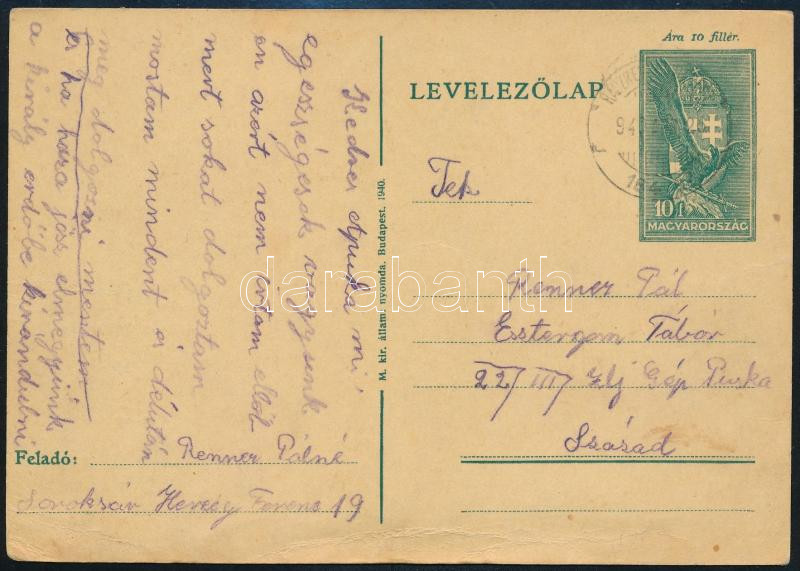 Ára 10 fillér.
LEVELEZŐLAP
10f
MAGYARORSZÁG
Tek
Renner Pál
Esztergom Tábor
22/III Zlj Gép Puska
Század
M. kir. állami nyomda. Budapest. 1940.
Kedves Apuka mi
egeszségesek vagyunk
en azért nem irtam ellöb
mert sokat dolgoztam
mostam mindent a délután
meg dolgozni mentem
és ha haza jösz elmegyünk
a király erdőbe kirándulni
Feladó: Renner Pálné
Soroksár Herceg Ferenc 19
darabanth